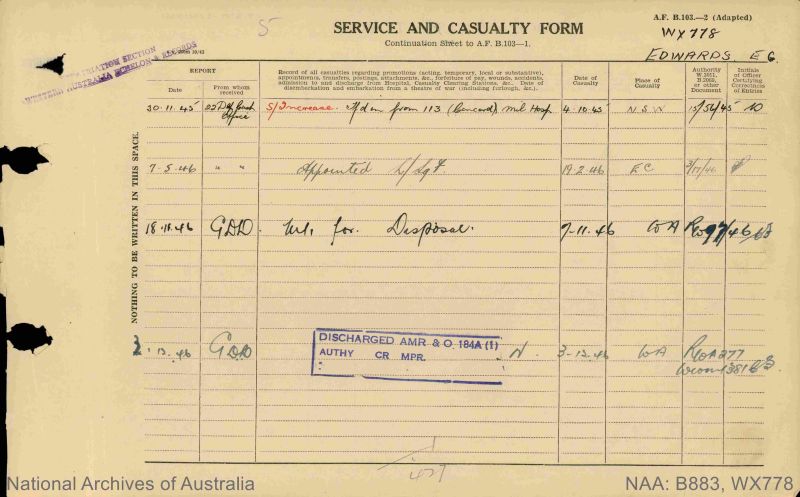 5
SERVICE AND CASUALTY FORM
Continuation Sheet to A.F. B.103—1.
A.F. B.103.—2 (Adapted)
WX778
EDWARDS E G.
WESTERN AUSTRALIA ECHELON & RECORDS
REPORT
Date
From whom received
Record of all casualties regarding promotions (acting, temporary, local or substantive), appointments, transfers, postings, attachments, &c., forfeiture of pay, wounds, accidents, admission to and discharge from Hospital, Casualty Clearing Stations, &c. Date of disembarkation and embarkation from a theatre of war (including furlough, &c.).
Date of Casualty
Place of Casualty
Authority W.3011, B.2069, or other Document
Initials of Officer Certifying Correctness of Entries
NOTHING TO BE WRITTEN IN THIS SPACE.
30.11.45 S/Increase. from 113 (Concord) Mil Hosp 4.10.45 NSW 15/56/45
7-5-46 " " Appointed L/Sgt. 19.2.46 EC
18.11.46 GDD for Disposal. 7-11-46 WA 97/46
.12.46 GDD DISCHARGED AMR. & O. 184A (1) N. 3-12-46 WA
AUTHY CR MPR.
National Archives of Australia
NAA: B883, WX778